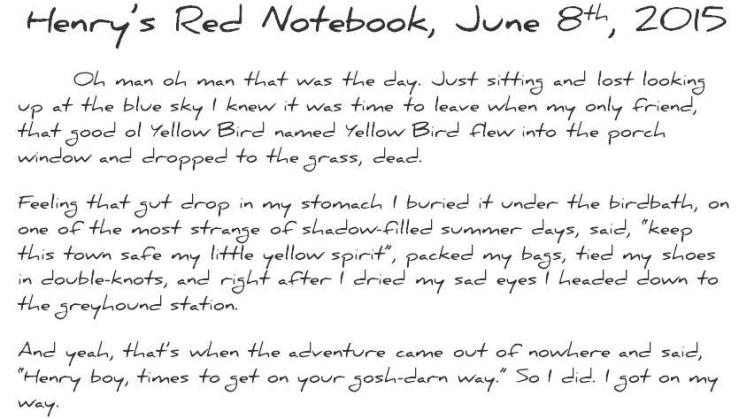 Henry's Red Notebook, June 8th, 2015
Oh man oh man that was the day. Just sitting and lost looking
up at the blue sky I knew it was time to leave when my only friend,
that good ol Yellow Bird named Yellow Bird flew into the porch
window and dropped to the grass, dead.
Feeling that gut drop in my stomach I buried it under the birdbath, on
one of the most strange of shadow-filled summer days, said, "keep
this town safe my little yellow spirit", packed my bags, tied my shoes
in double-knots, and right after I dried my sad eyes I headed down to
the greyhound station.
And yeah, that's when the adventure came out of nowhere and said,
"Henry boy, times to get on your gosh-darn way." So I did. I got on my
way.